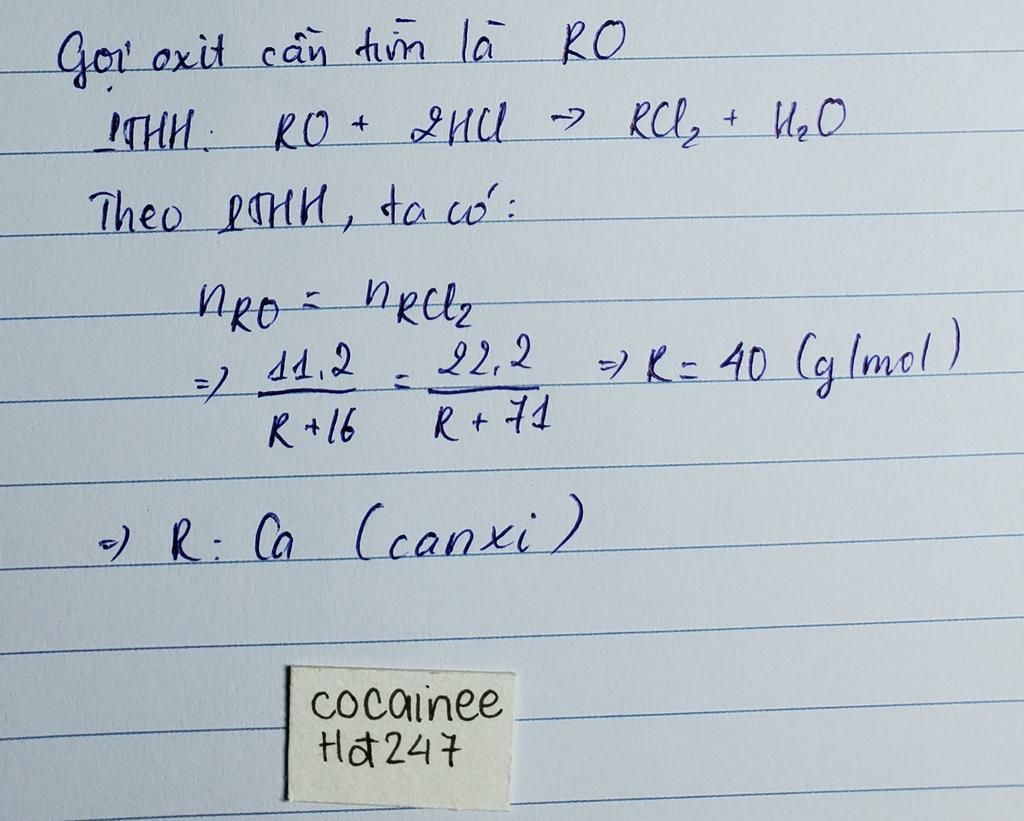 Gọi oxit cần tìm là RO
PTHH: RO + 2HCl → RCl₂ + H₂O
Theo PTHH, ta có:
nRO = nRCl₂
=> 11,2/(R+16) = 22,2/(R+71) => R = 40 (g/mol)
=> R: Ca (canxi)
cocainee
Hđ247